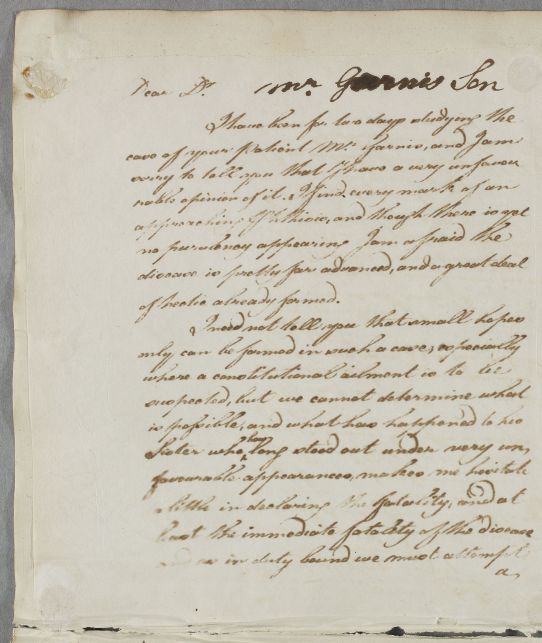 Dear Dr. Mr Garnis Son
I have been for two days studying the
case of your Patient Mr Garnis, and I am
sorry to tell you that I have a very unfavou
rable opinion of it. I find every mark of an
approaching Phthisis, and though there is yet
no purulency appearing I am afraid the
disease is pretty far advanced, and a great deal
of hectic already formed.
I need not tell you that small hopes
only can be formed in such a case, especially
where a constitutional ailment is to be
suspected, but we cannot determine what
is possible, and what has happened to his
Sister who has long stood out under very un,
favourable appearances, makes me hesitate
a little in declaring the fatality, and at
least the immediate fatality of the disease
and as in duty bound we must attempt
a